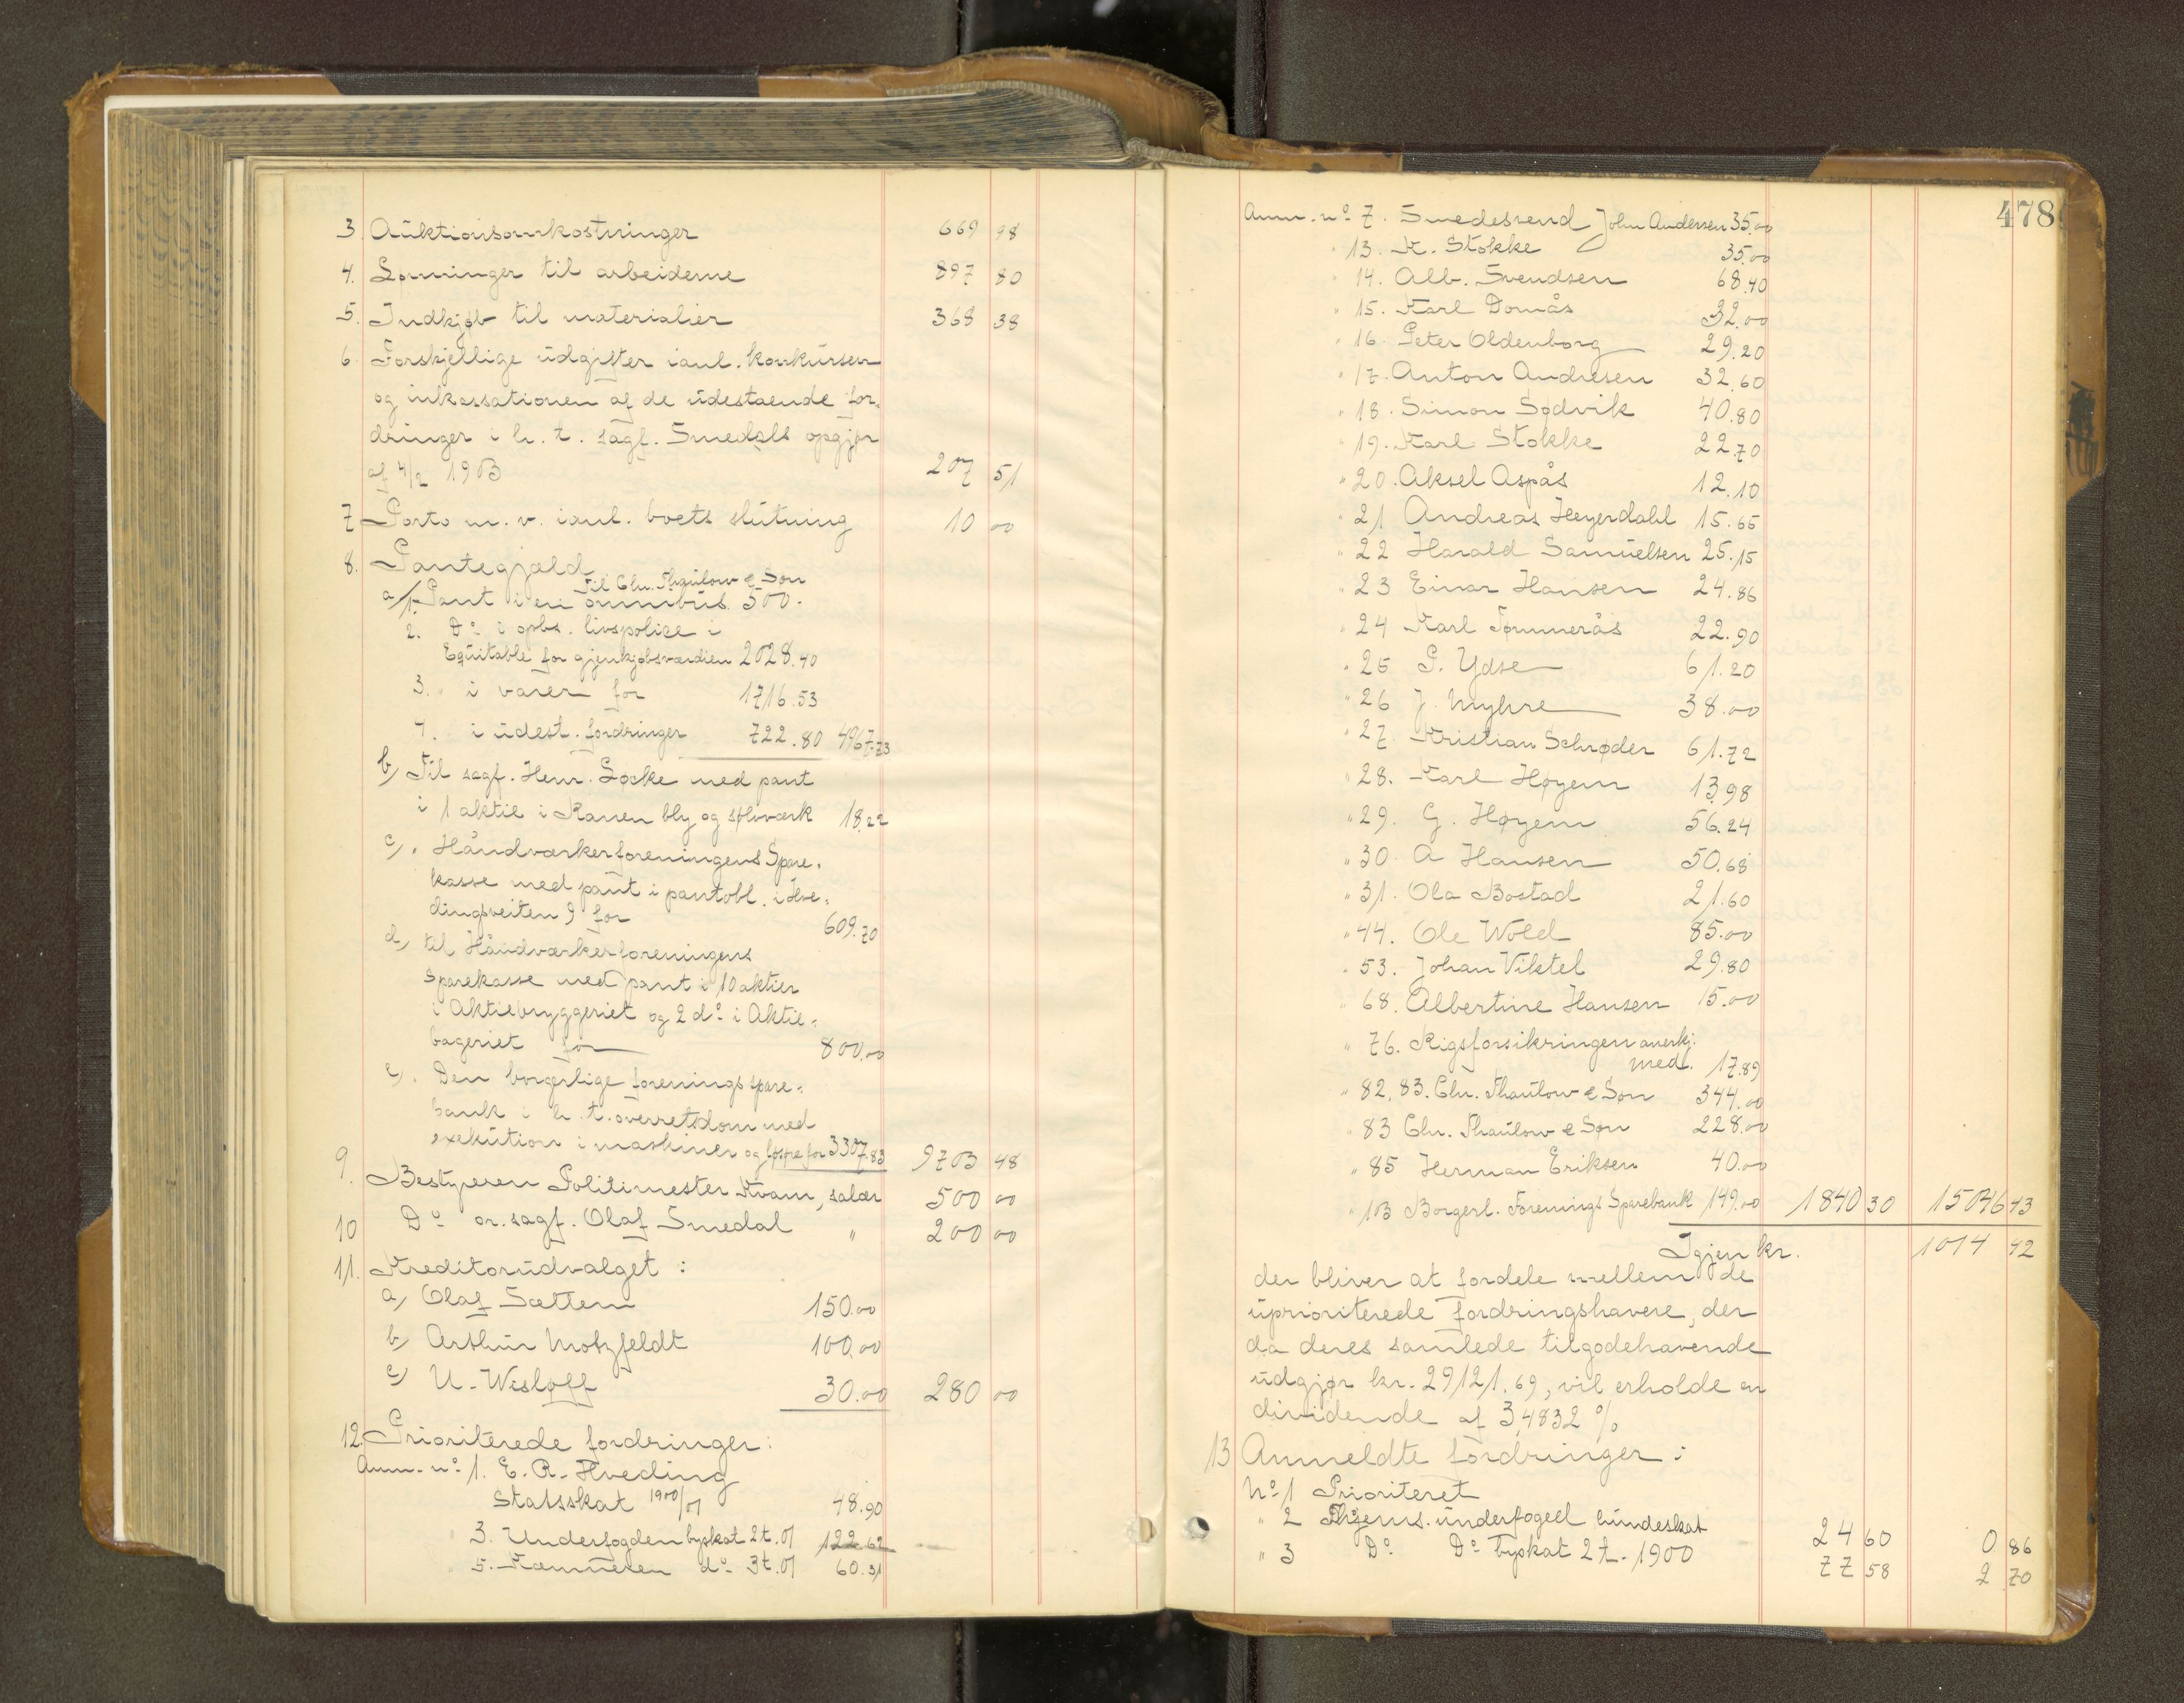 3. Auktionsomkostninger 669 98
4. Lønninger til arbeiderne 897 80
5. Indkjøb til materialier 368 38
6. Forskjellige udgifter i anl. konkursen
og inkassationen af de udestaaende for-
dringer i h. t. sagf. Smedals opgjør
af 4/2 1903 207 51
7 Porto m. v. i anl. boets slutning 10 00
8. Pantegjæld
Til Chr. Thaulow & Søn
a/1. Pant i en omnibus 500.
2. Do i opbs. livspolice i
Equitable for gjenkjøbsværdien 2028.40
3. " i varer for 1716.53
4. " i udest. fordringer 722.80 4967.73
b) Til sagf. Henr. Løcke med pant
i 1 aktie i Ranen bly og sølvværk 18.22
c) " Håndværkerforeningens Spare-
kasse med pant i pantobl. i Hve-
dingsveiten 9 for 609.70
d) til Håndværkerforeningens
Sparekasse med pant i 10 aktier
i Aktiebryggeriet og 2 do i Aktie-
bageriet for 800.00
e) " Den borgerlige forenings spare-
bank i h. t. overretsdom med
exekution i maskiner og løsøre for 3307.83 9703 48
9. Bestyreren Politimester Kvam, salær 500 00
10 Do or. sagf. Olaf Smedal " 200 00
11. Kreditorudvalget :
a) Olaf Sættem 150.00
b) Arthur Motzfeldt 100.00
c) U. Wisløff 30.00 280 00
12. Prioriterede fordringer:
Anm. no 1. E. R. Hveding
Statsskat 1900/01 48.90
" 3. Underfogden byskat 2 t. 01 122.62
" 5. Kæmneren do 3 t. 01 60.31
478
Anm. no 7. Smedesvend John Andersen 35.00
" 13. K. Stokke 35.00
" 14. Alb. Svendsen 68.40
" 15. Karl Domås 32.00
" 16 Peter Oldenborg 29.20
" 17. Anton Andresen 32.60
" 18. Simon Sødvik 40.80
" 19. Karl Stokke 22.70
" 20. Aksel Aspås 12.10
" 21 Andreas Heyerdahl 15.65
" 22 Harald Samuelsen 25.15
" 23 Einar Hansen 24.86
" 24 Karl Tømmerås 22.90
" 25 P. Ydse 61.20
" 26 J. Myhre 38.00
" 27 Kristian Schrøder 61.72
" 28. Karl Høyem 13.98
" 29. G. Høyem 56.24
" 30. A Hansen 50.68
" 31. Ola Bostad 21.60
" 44. Ole Wold 85.00
" 53. Johan Viktel 29.80
" 68. Albertine Hansen 15.00
" 76. Rigsforsikringen anerkj.
med. 17.89
" 82, 83. Chr. Thaulow & Søn 344.00
" 83 Chr. Thaulow & Søn 228.00
" 85 Herman Eriksen 40.00
" 103 Borgerl. Forenings Sparebank 149.00 1840 30 15046 43
Igjen kr. 1014 42
der bliver at fordele mellem de
uprioriterede fordringshavere, der
da deres samlede tilgodehavende
udgjør kr. 29121.69, vil erholde en
dividende af 3,4832 %
13 Anmeldte fordringer :
No 1 Prioriteret
" 2 Thjems. underfoged hundeskat 24 60 0 86
" 3 Do Do byskat 2 t. 1900 77 58 2 70